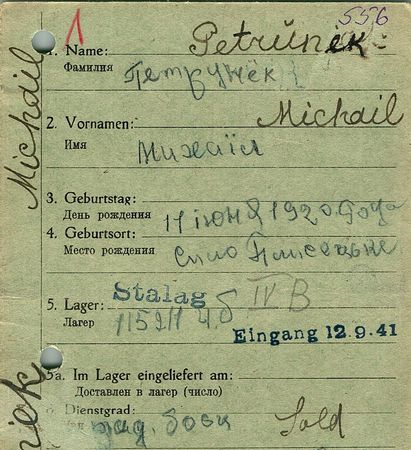 5556
1
1. Name: Petrŭnĕk:
Фамилия Петрунёк
Michail
2. Vornamen: Michail
Имя Михаіл
3. Geburtstag:
День рождения 11 июня 1920. года
4. Geburtsort:
Место рождения Село
5. Lager: Stalag IV B
Лагер
Eingang 12.9.41
5a. Im Lager eingeliefert am:
Доставлен в лагер (число)
Dienstgrad: Sold